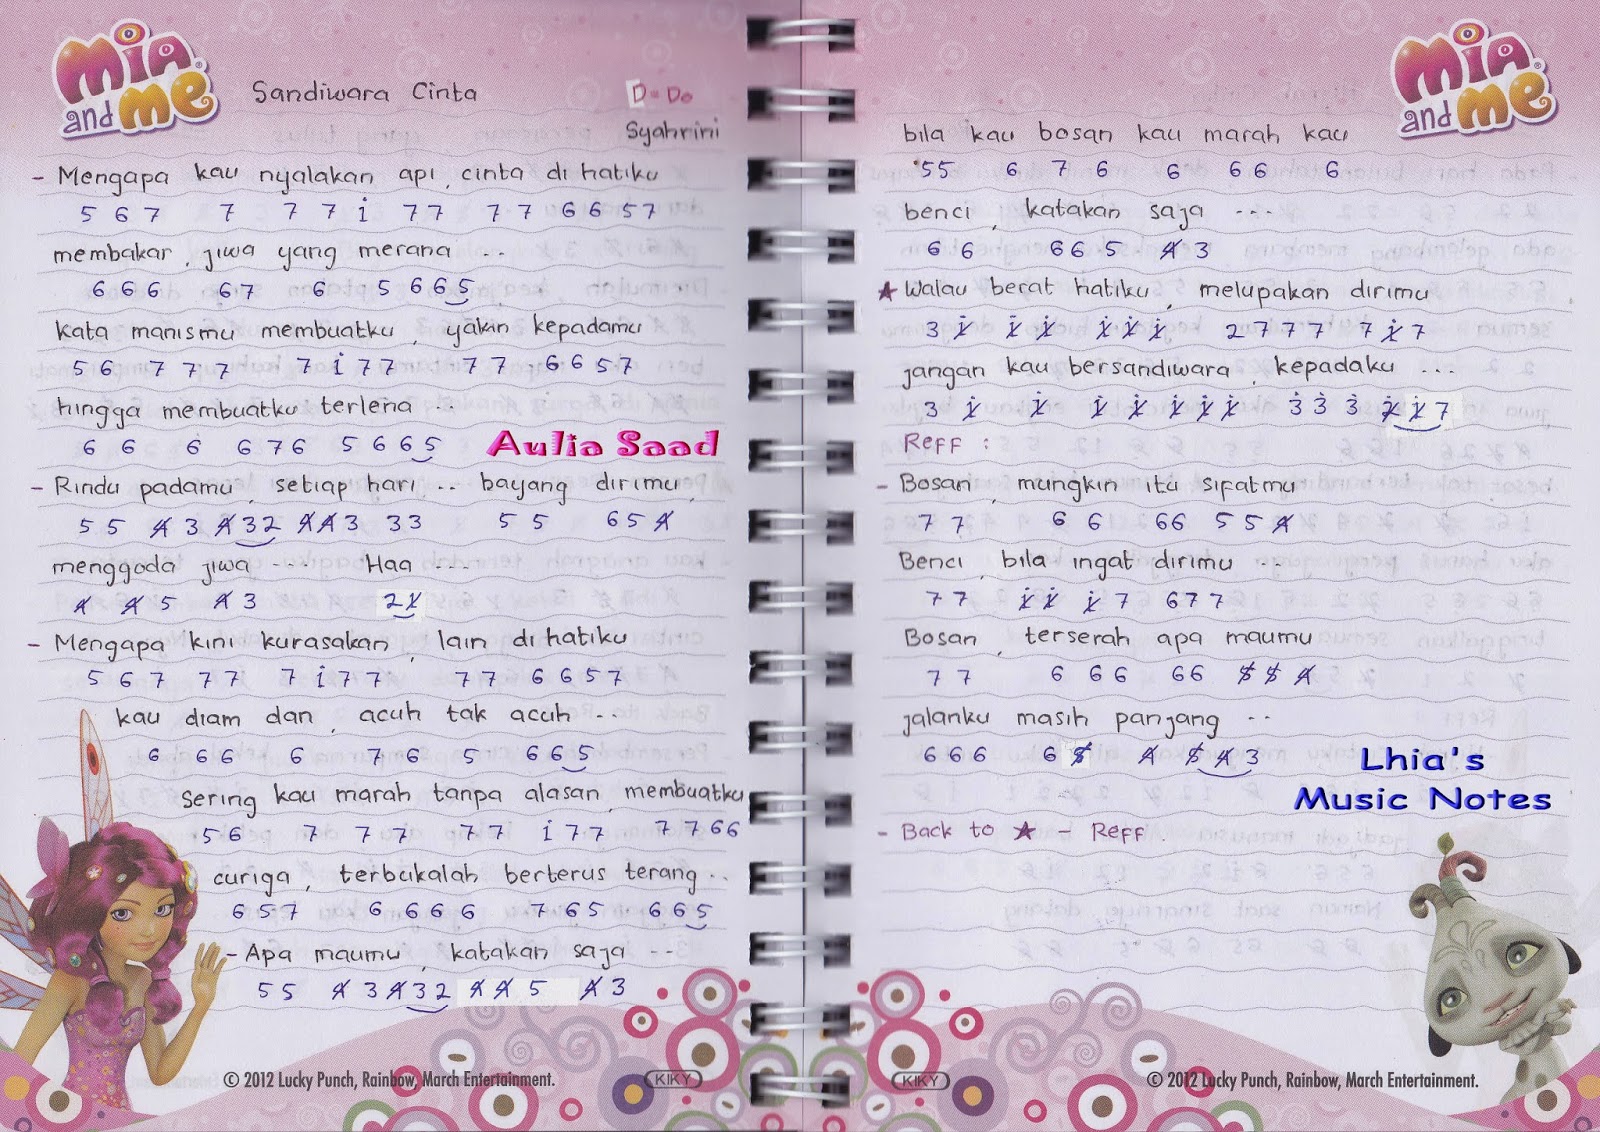 mia and me
Sandiwara Cinta D = Do
Syahrini
- Mengapa kau nyalakan api, cinta di hatiku
5 6 7 7 7 7 i 7 7 7 7 6 6 5 7
membakar, jiwa yang merana ..
6 6 6 6 7 6 5 6 6 5
kata manismu membuatku, yakin kepadamu
5 6 7 7 7 7 i 7 7 7 7 6 6 5 7
hingga membuatku terlena ..
6 6 6 6 7 6 5 6 6 5
Aulia Saad
- Rindu padamu, setiap hari .. bayang dirimu,
5 5 4 3 4 3 2 4 4 3 3 3 5 5 6 5 4
menggoda jiwa ... Haa ...
4 4 5 4 3 2 1
- Mengapa kini kurasakan, lain di hatiku
5 6 7 7 7 7 i 7 7 7 7 6 6 5 7
kau diam dan, acuh tak acuh ..
6 6 6 6 7 6 5 6 6 5
sering kau marah tanpa alasan, membuatku
5 6 7 7 7 7 7 i 7 7 7 7 6 6
curiga, terbukalah berterus terang ..
6 5 7 6 6 6 6 7 6 5 6 6 5
- Apa maumu, katakan saja ..
5 5 4 3 4 3 2 4 4 5 4 3
© 2012 Lucky Punch, Rainbow, March Entertainment.
KIKY
mia and me
bila kau bosan kau marah kau
5 5 6 7 6 6 6 6 6
benci, katakan saja ...
6 6 6 6 5 4 3
★ Walau berat hatiku, melupakan dirimu
3 i i i i i i 2 7 7 7 7 i 7
jangan kau bersandiwara, kepadaku ...
3 i i i i i i i 3 3 3 2 i 7
Reff :
- Bosan, mungkin itu sifatmu
7 7 6 6 6 6 5 5 4
Benci, bila ingat dirimu ..
7 7 i i i 7 6 7 7
Bosan, terserah apa maumu
7 7 6 6 6 6 6 5 5 4
jalanku masih panjang ..
6 6 6 6 5 4 5 4 3
Lhia's
Music Notes
- Back to ★ - Reff.
KIKY
© 2012 Lucky Punch, Rainbow, March Entertainment.